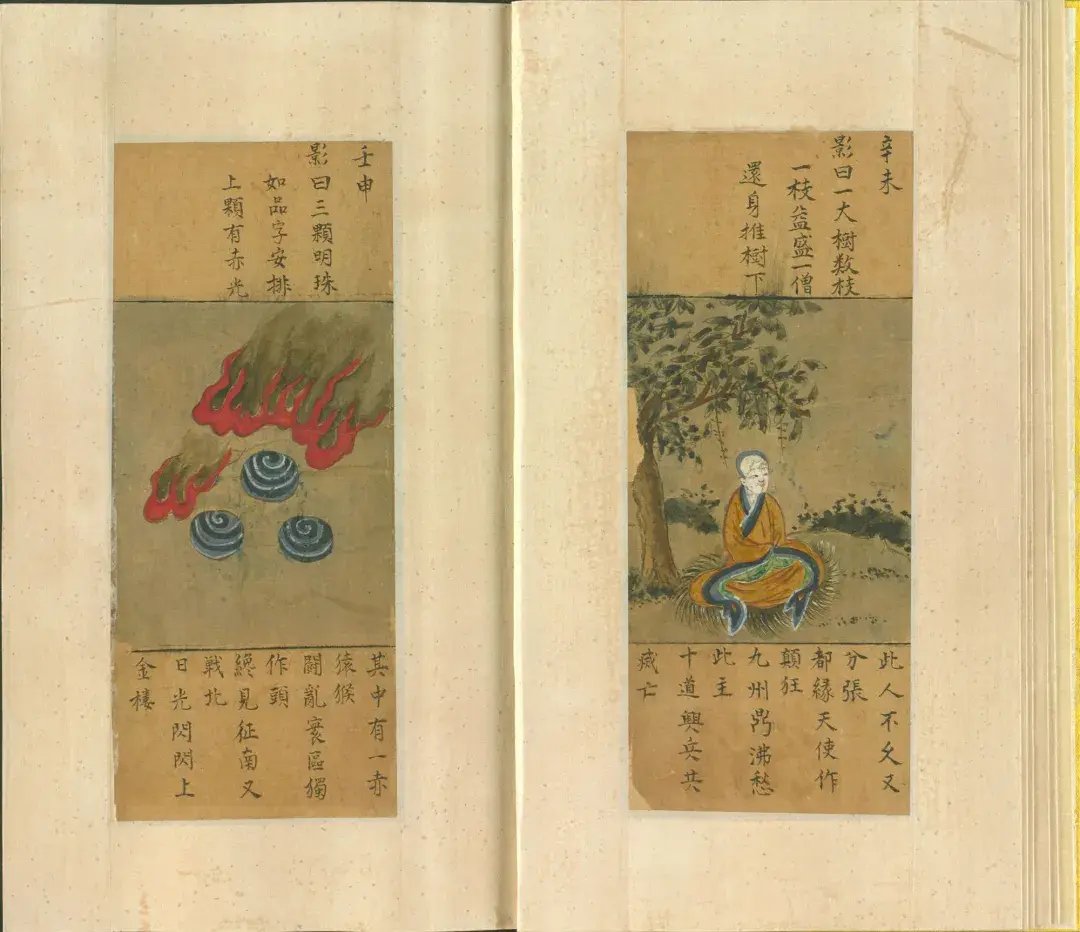 辛未
影曰一大樹数枝
一枝益盛一僧
還身推樹下
此人不久又
分張
都緣天使作
顛狂
九州鼎沸愁
此主
十道興兵共
滅亡
壬申
影曰三顆明珠
如品字安排
上顆有赤光
其中有一赤
猿猴
鬪亂寰區獨
作頭
纔見征南又
戦北
日光閃閃上
金樓